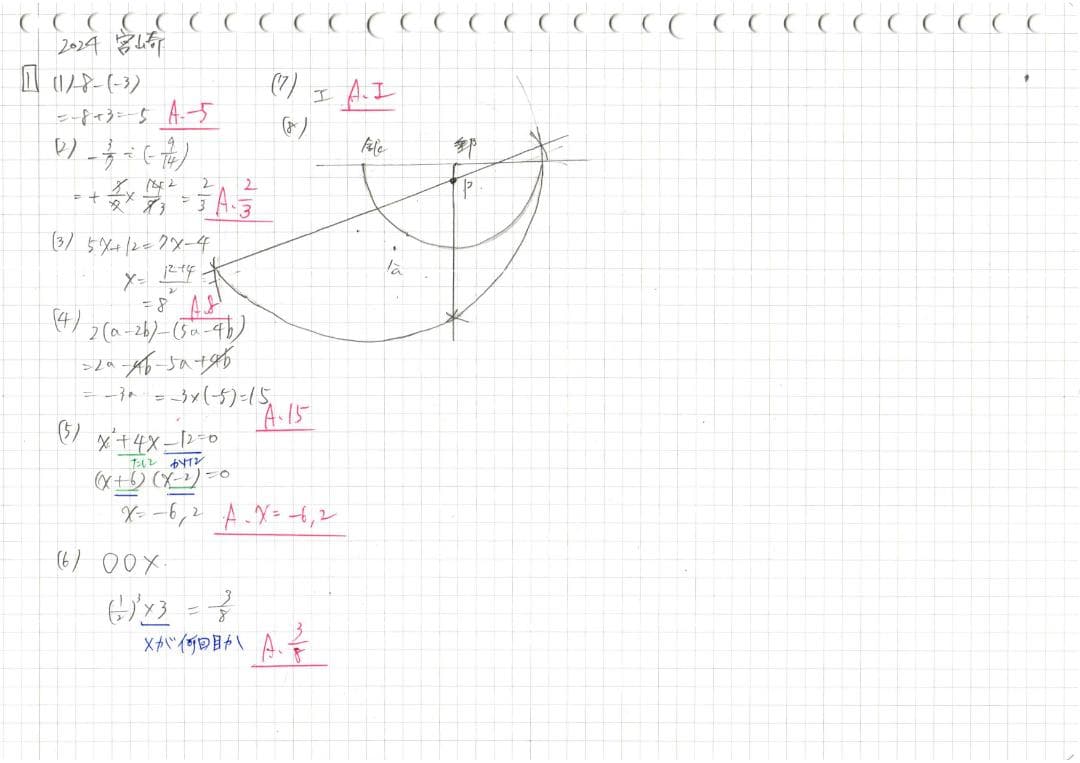 2024 宮崎
1 (1) -8-(-3)
=-8+3=-5 A.-5
(2) -3/7÷(-9/14)
=+3/7×14/9 2 3 =2/3 A.2/3
(3) 5x+12=7x-4
x=12+4/2
=8 A.8
(4) 2(a-2b)-(5a-4b)
=2a-4b-5a+4b
=-3a =-3×(-5)=15
A.15
(5) x²+4x-12=0
たして かけて
(x+6)(x-2)=0
x=-6,2 A.x=-6,2
(6) ○○×
(1/2)³×3 =3/8
×が何回目か A.3/8
(7) エ A.エ
(8)
P